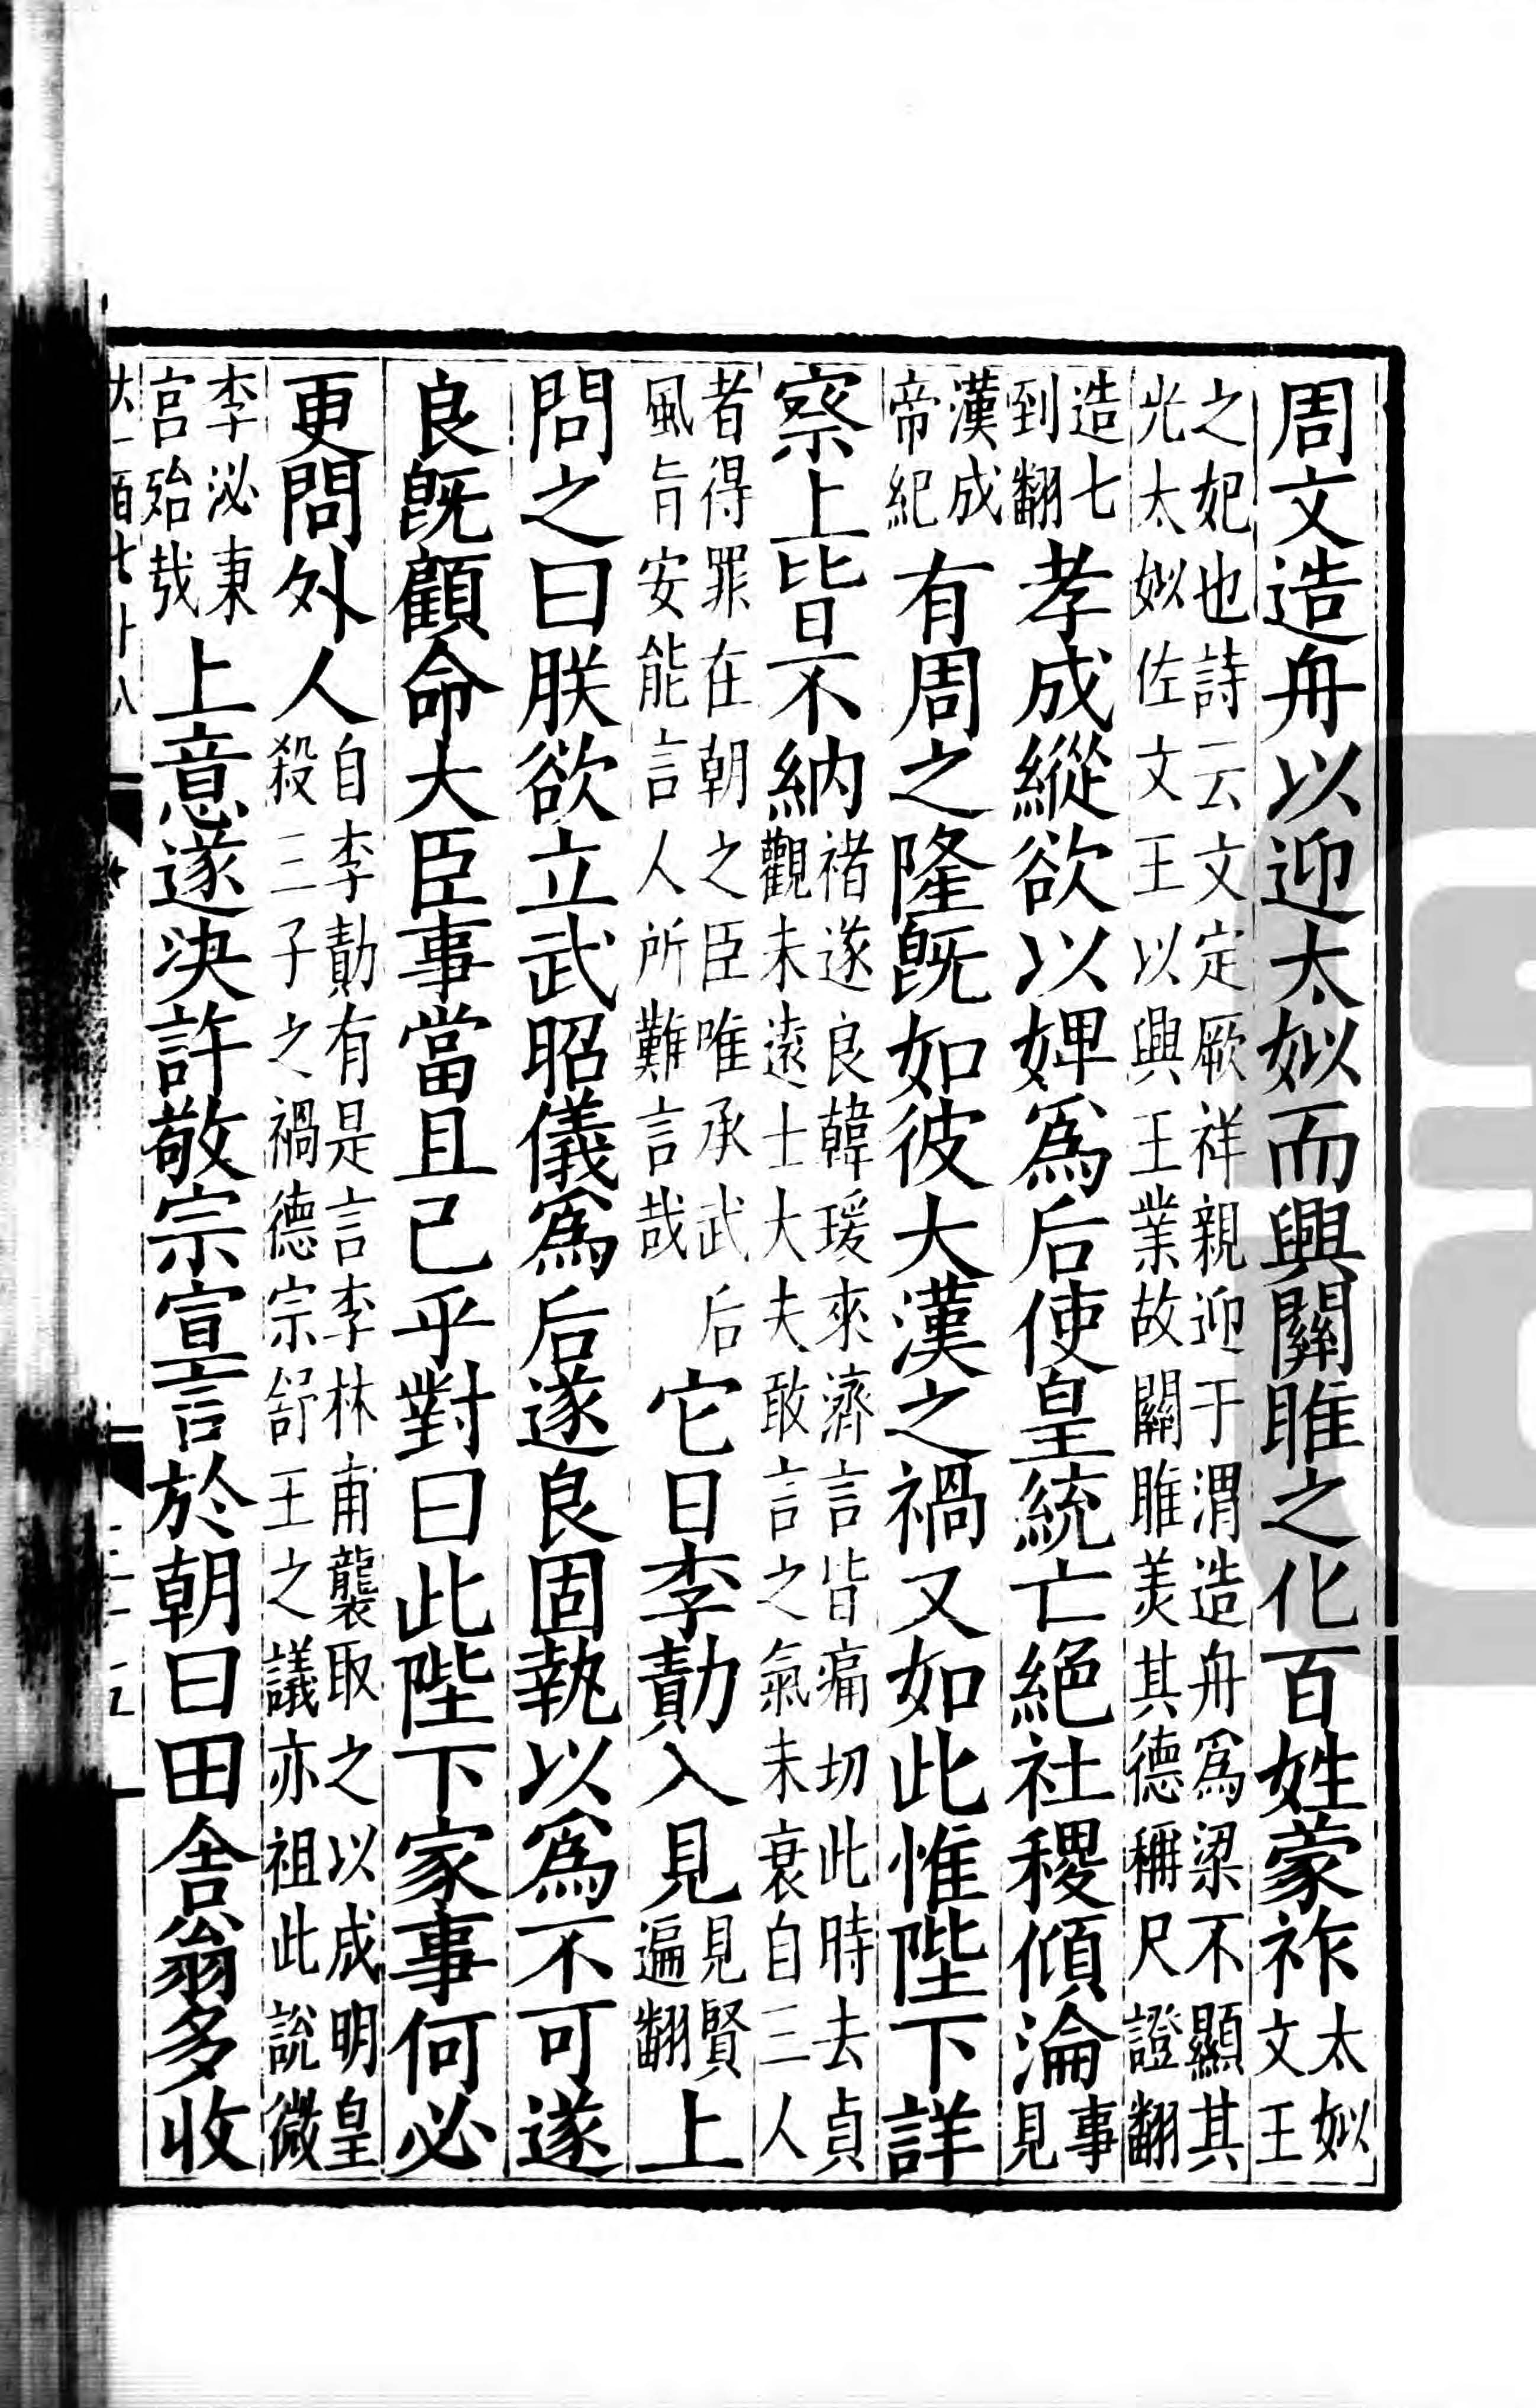 周文造舟以迎太姒而興關雎之化百姓蒙祚太姒文王
之妃也詩云文定厥祥親迎于渭造舟爲梁不顯其
光太姒佐文王以興王業故關雎美其德稱尺證翻
造七到翻孝成縱欲以婢爲后使皇統亡絕社稷傾淪事見
漢成帝紀有周之隆旣如彼大漢之禍又如此惟陛下詳
察上皆不納褚遂良韓瑗來濟言皆痛切此時去貞觀未遠士大夫敢言之氣未衰自三人
者得罪在朝之臣唯承武后風旨安能言人所難言哉它日李勣入見見賢遍翻上
問之曰朕欲立武昭儀爲后遂良固執以爲不可遂
良旣顧命大臣事當且已乎對曰此陛下家事何必
更問外人自李勣有是言李林甫襲取之以成明皇殺三子之禍德宗舒王之議亦祖此說微
李泌東宮殆哉上意遂決許敬宗宣言於朝曰田舍翁多收